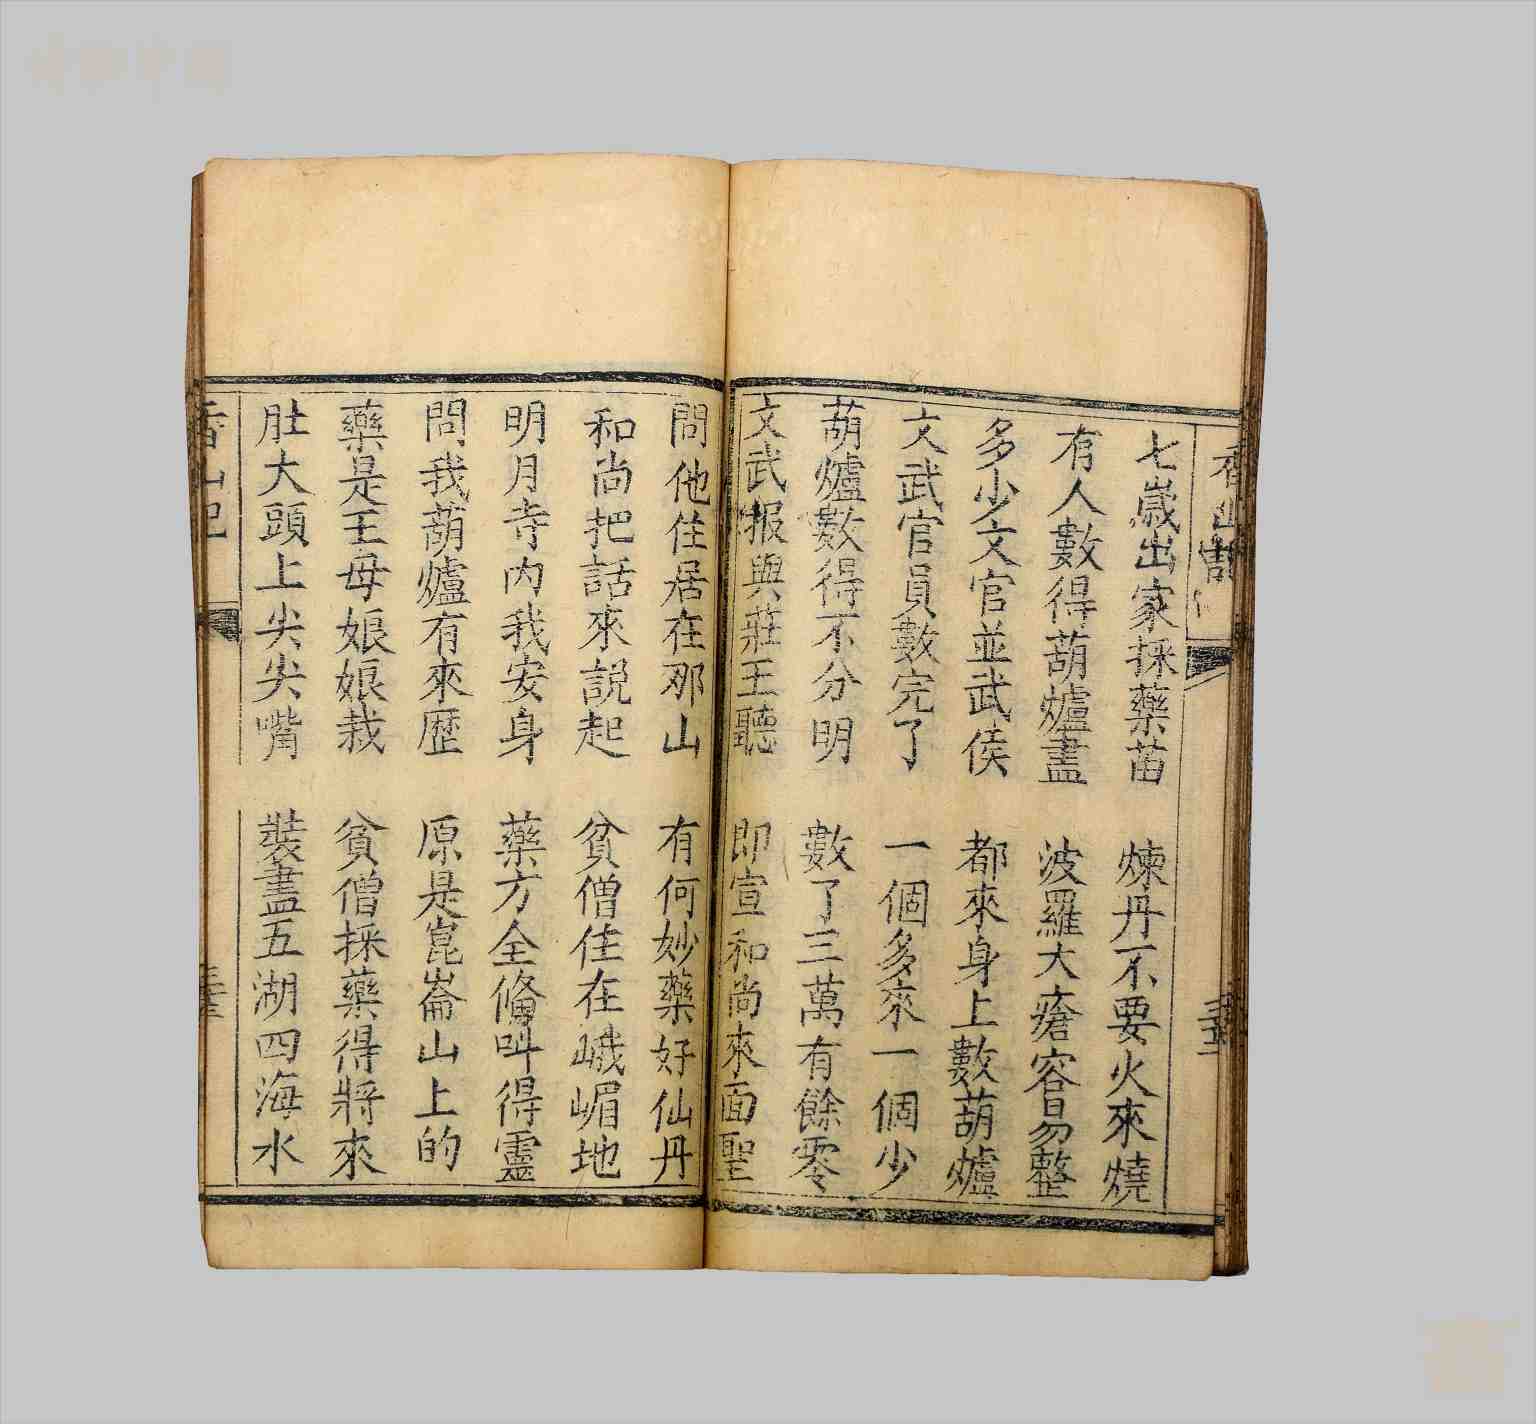 七嵗出家採藥苗 煉丹不要火來燒
有人數得葫爐盡 波羅大瘡容易整
多少文官並武侯 都來身上數葫爐
文武官員數完了 一個多來一個少
葫爐數得不分明 數了三萬有餘零
文武报與莊王聽 即宣和尚來面聖
問他住居在那山 有何妙藥好仙丹
和尚把話來説起 貧僧住在峨嵋地
明月寺内我安身 藥方全俻叫得靈
問我葫爐有來歷 原是崑崙山上的
藥是王母娘娘栽 貧僧採藥得將來
肚大頭上尖尖嘴 裝盡五湖四海水
香山記